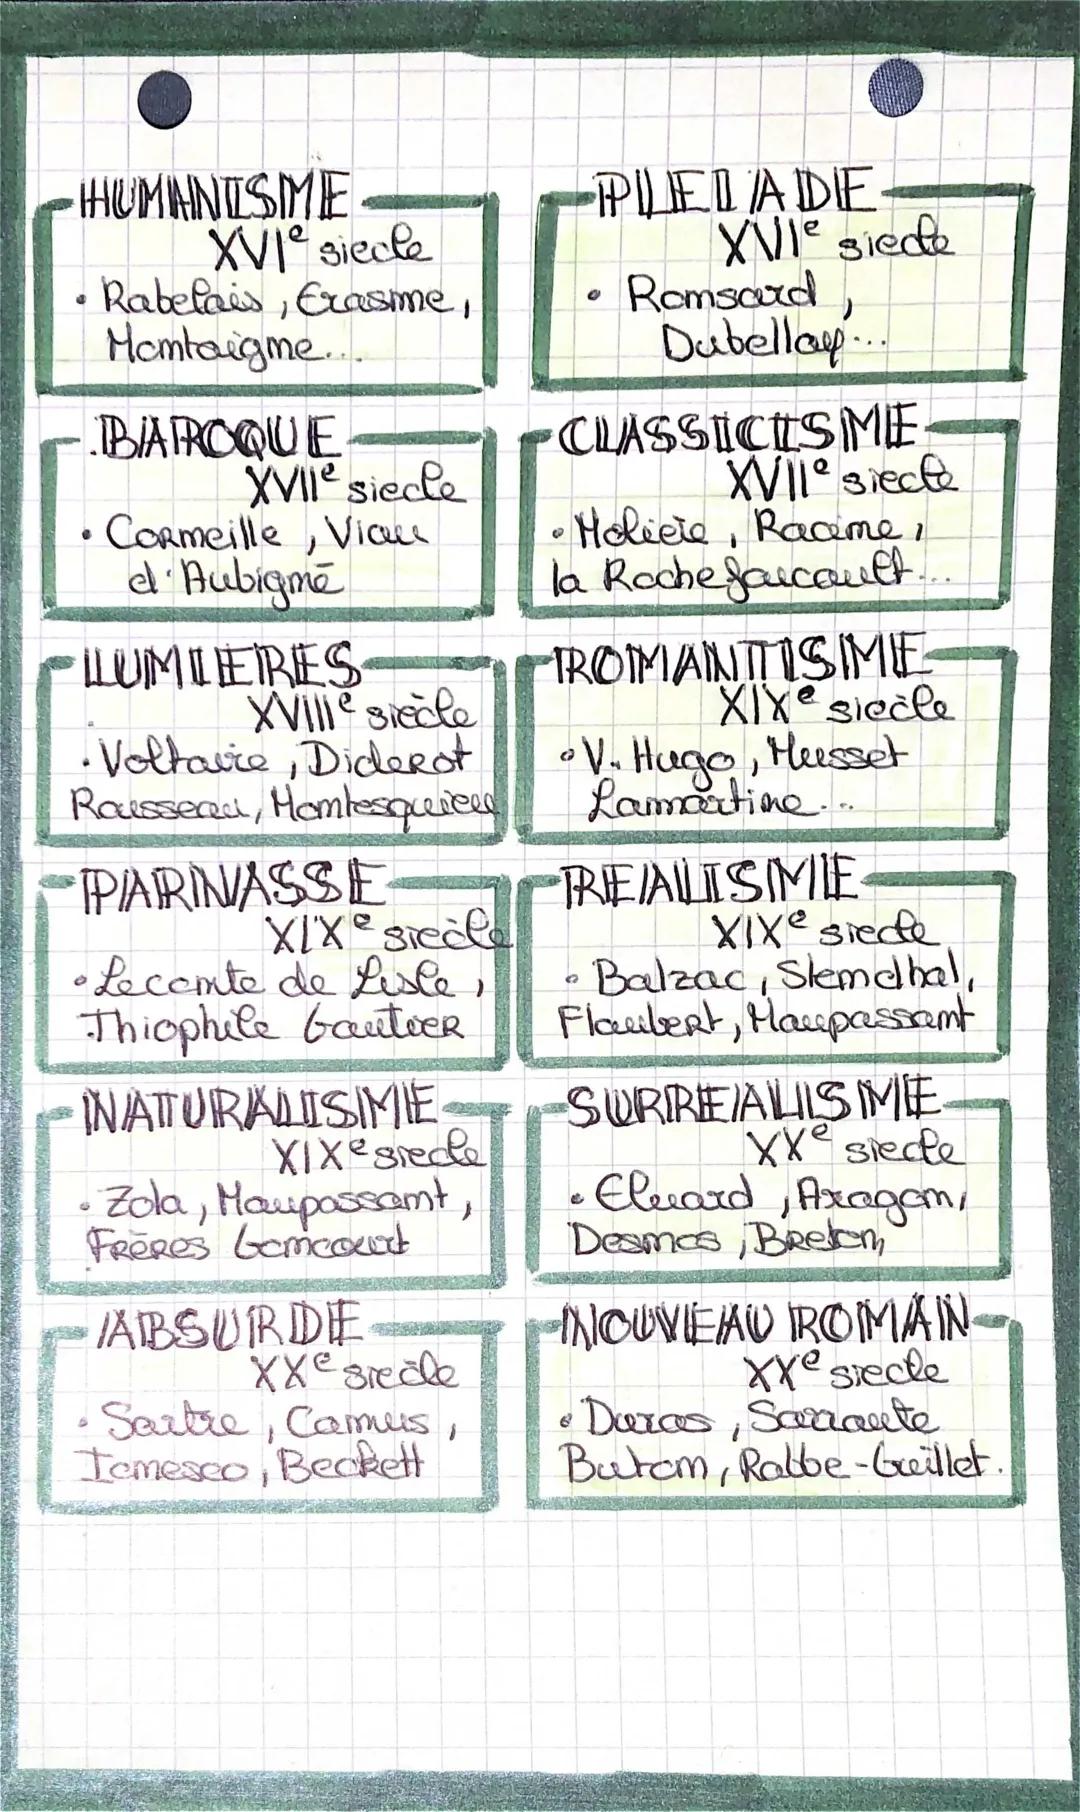 HUMANISME
XVIe siecle
• Rabelais, Erasme,
Montaigne...
PLEIADE
XVIe siecle
• Ronsard,
Dubellay...
BAROQUE
XVIIe siecle
• Corneille, Viau
d'Aubigné
CLASSICISME
XVIIe siecle
• Moliere, Racine,
la Rochefoucault...
LUMIERES
XVIIIe siècle
• Voltaire, Diderot
Rousseau, Montesquieu
ROMANTISME
XIXe siècle
• V. Hugo, Musset
Lamartine...
PARNASSE
XIXe siècle
• Leconte de Lisle,
Thiophile Gautier
REALISME
XIXe siecle
• Balzac, Stendhal,
Flaubert, Maupassant
NATURALISME
XIXe siecle
• Zola, Maupassant,
Frères Goncourt
SURREALISME
XXe siecle
• Eluard, Aragon,
Desnos, Breton,
ABSURDE
XXe siècle
• Sartre, Camus,
Ionesco, Beckett
NOUVEAU ROMAN
XXe siecle
• Duras, Sarraute
Butom, Robbe-Grillet.